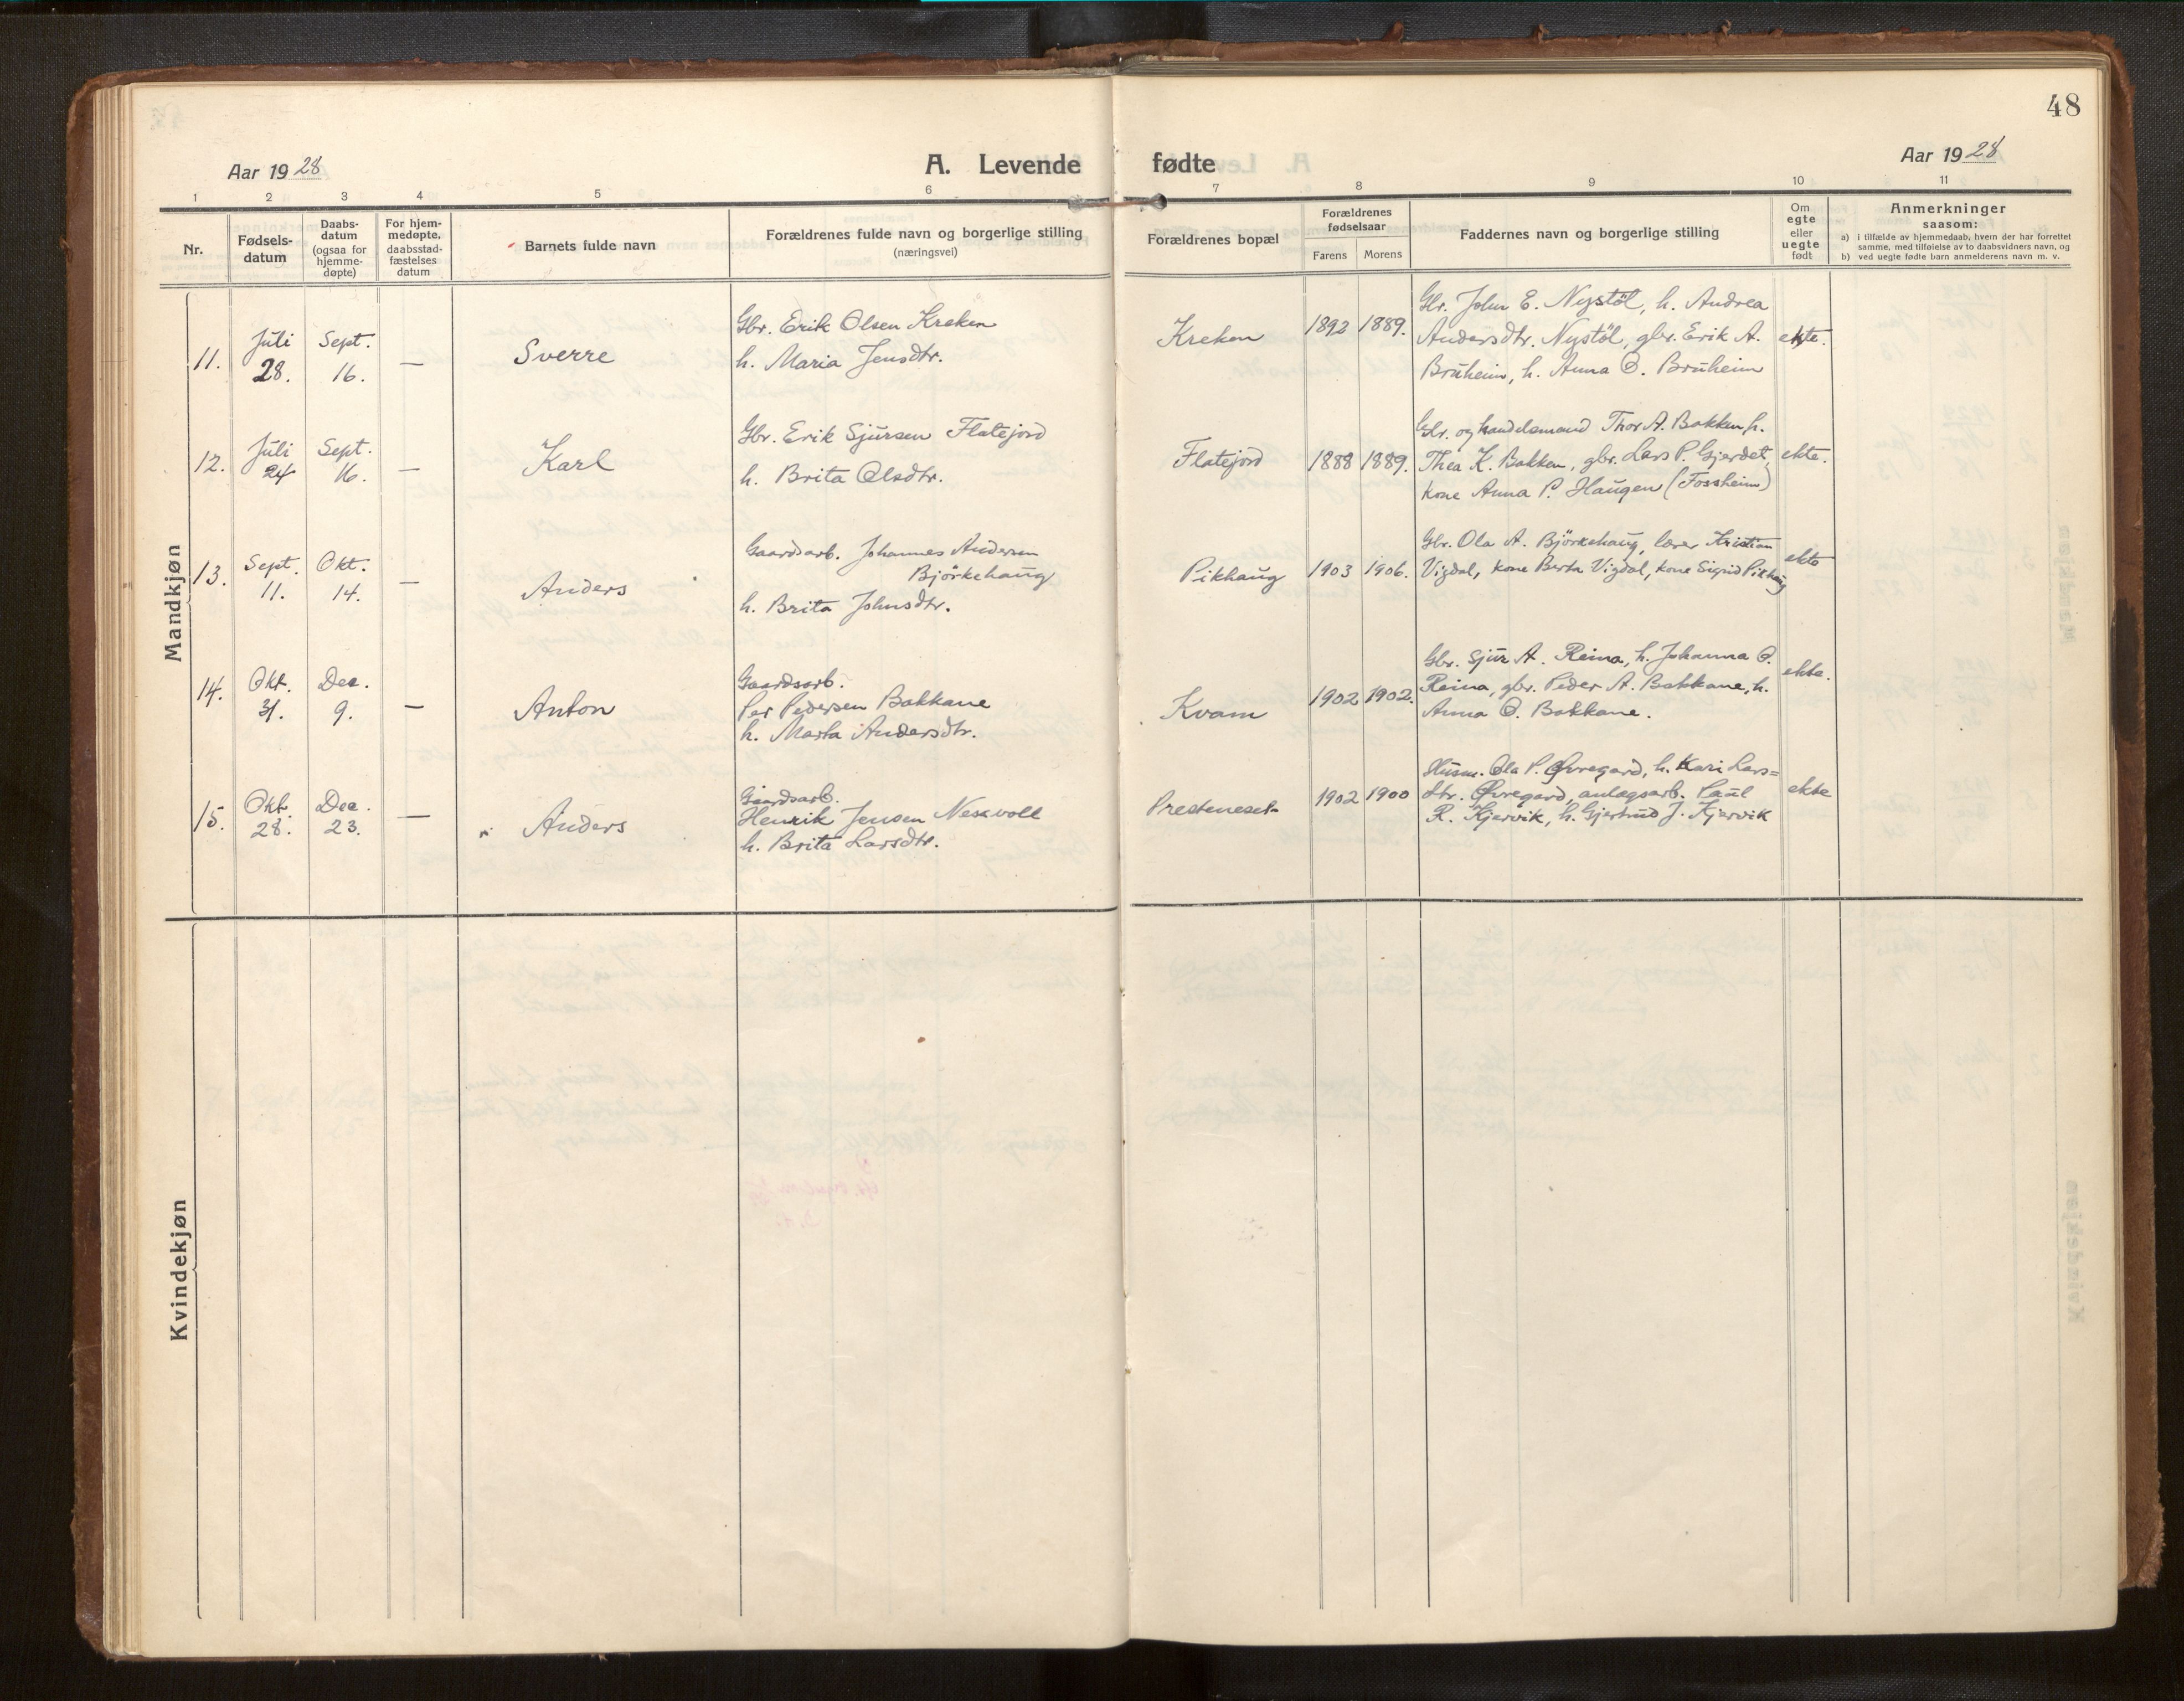 48
Aar 1928
A. Levende fødte
Aar 1928
1 2 3 4 5 6 7 8 9 10 11
Nr.
Fødsels-
datum
Daabs-
datum
(ogsaa for
hjemme-
døpte)
For hjem-
medøpte,
daabsstad-
fæstelses
datum
Barnets fulde navn
Forældrenes fulde navn og borgerlige stilling
(næringsvei)
Forældrenes bopæl
Forældrenes
fødselsaar
Farens Morens
Faddernes navn og borgerlige stilling
Om
egte
eller
uegte
født
Anmerkninger
saasom:
a) i tilfælde av hjemmedaab, hvem der har forrettet
samme, med tilføielse av to daabsvidners navn, og
b) ved uegte fødte barn anmelderens navn m. v.
Mandkjøn
11.
Juli
28.
Sept.
16.
—
Sverre
Gbr. Erik Olsen Kreken
h. Maria Jensdtr.
Kreken
1892 1889.
Gbr. John E. Nystöl, h. Andrea
Andersdtr. Nystöl, gbr. Erik A.
Bruheim, h. Anna O. Bruheim
ekte.
12.
Juli
24
Sept.
16.
—
Karl
Gbr. Erik Sjursen Flatejord
h. Brita Olsdtr.
Flatejord
1888 1889.
Gbr. og handelsmand Thor A. Bakken h.
Thea K. Bakken, gbr. Lars P. Gjerdet,
kone Anna P. Haugen (Fossheim)
ekte.
13.
Sept.
11.
Okt.
14.
—
Anders
Gaardsarb. Johannes Andersen
Björkehaug
h. Brita Johnsdtr.
Pikhaug
1903 1906.
Gbr. Ola A. Björkehaug, lærer Kristian
Vigdal, kone Berta Vigdal, kone Sigrid Pikhaug
ekte
14.
Okt.
31.
Dec.
9.
—
Anton
Gaardsarb.
Per Pedersen Bakkane
h. Marta Andersdtr.
Kvam
1902 1902.
Gbr. Sjur A. Reina, h. Johanna O.
Reina, gbr. Peder A. Bakkane, h.
Anna O. Bakkane.
ekte.
15.
Okt.
28.
Dec.
23.
—
Anders
Gaardsarb.
Henrik Jensen Nesxvoll
h. Brita Larsdtr.
Presteneset
1902 1900
Husm. Ola P. Øvregard, h. Kari Lars=
dtr. Øvregard, anlægsarb. Paul
R. Kjervik, h. Gjertrud J. Kjervik
ekte
Kvindekjøn